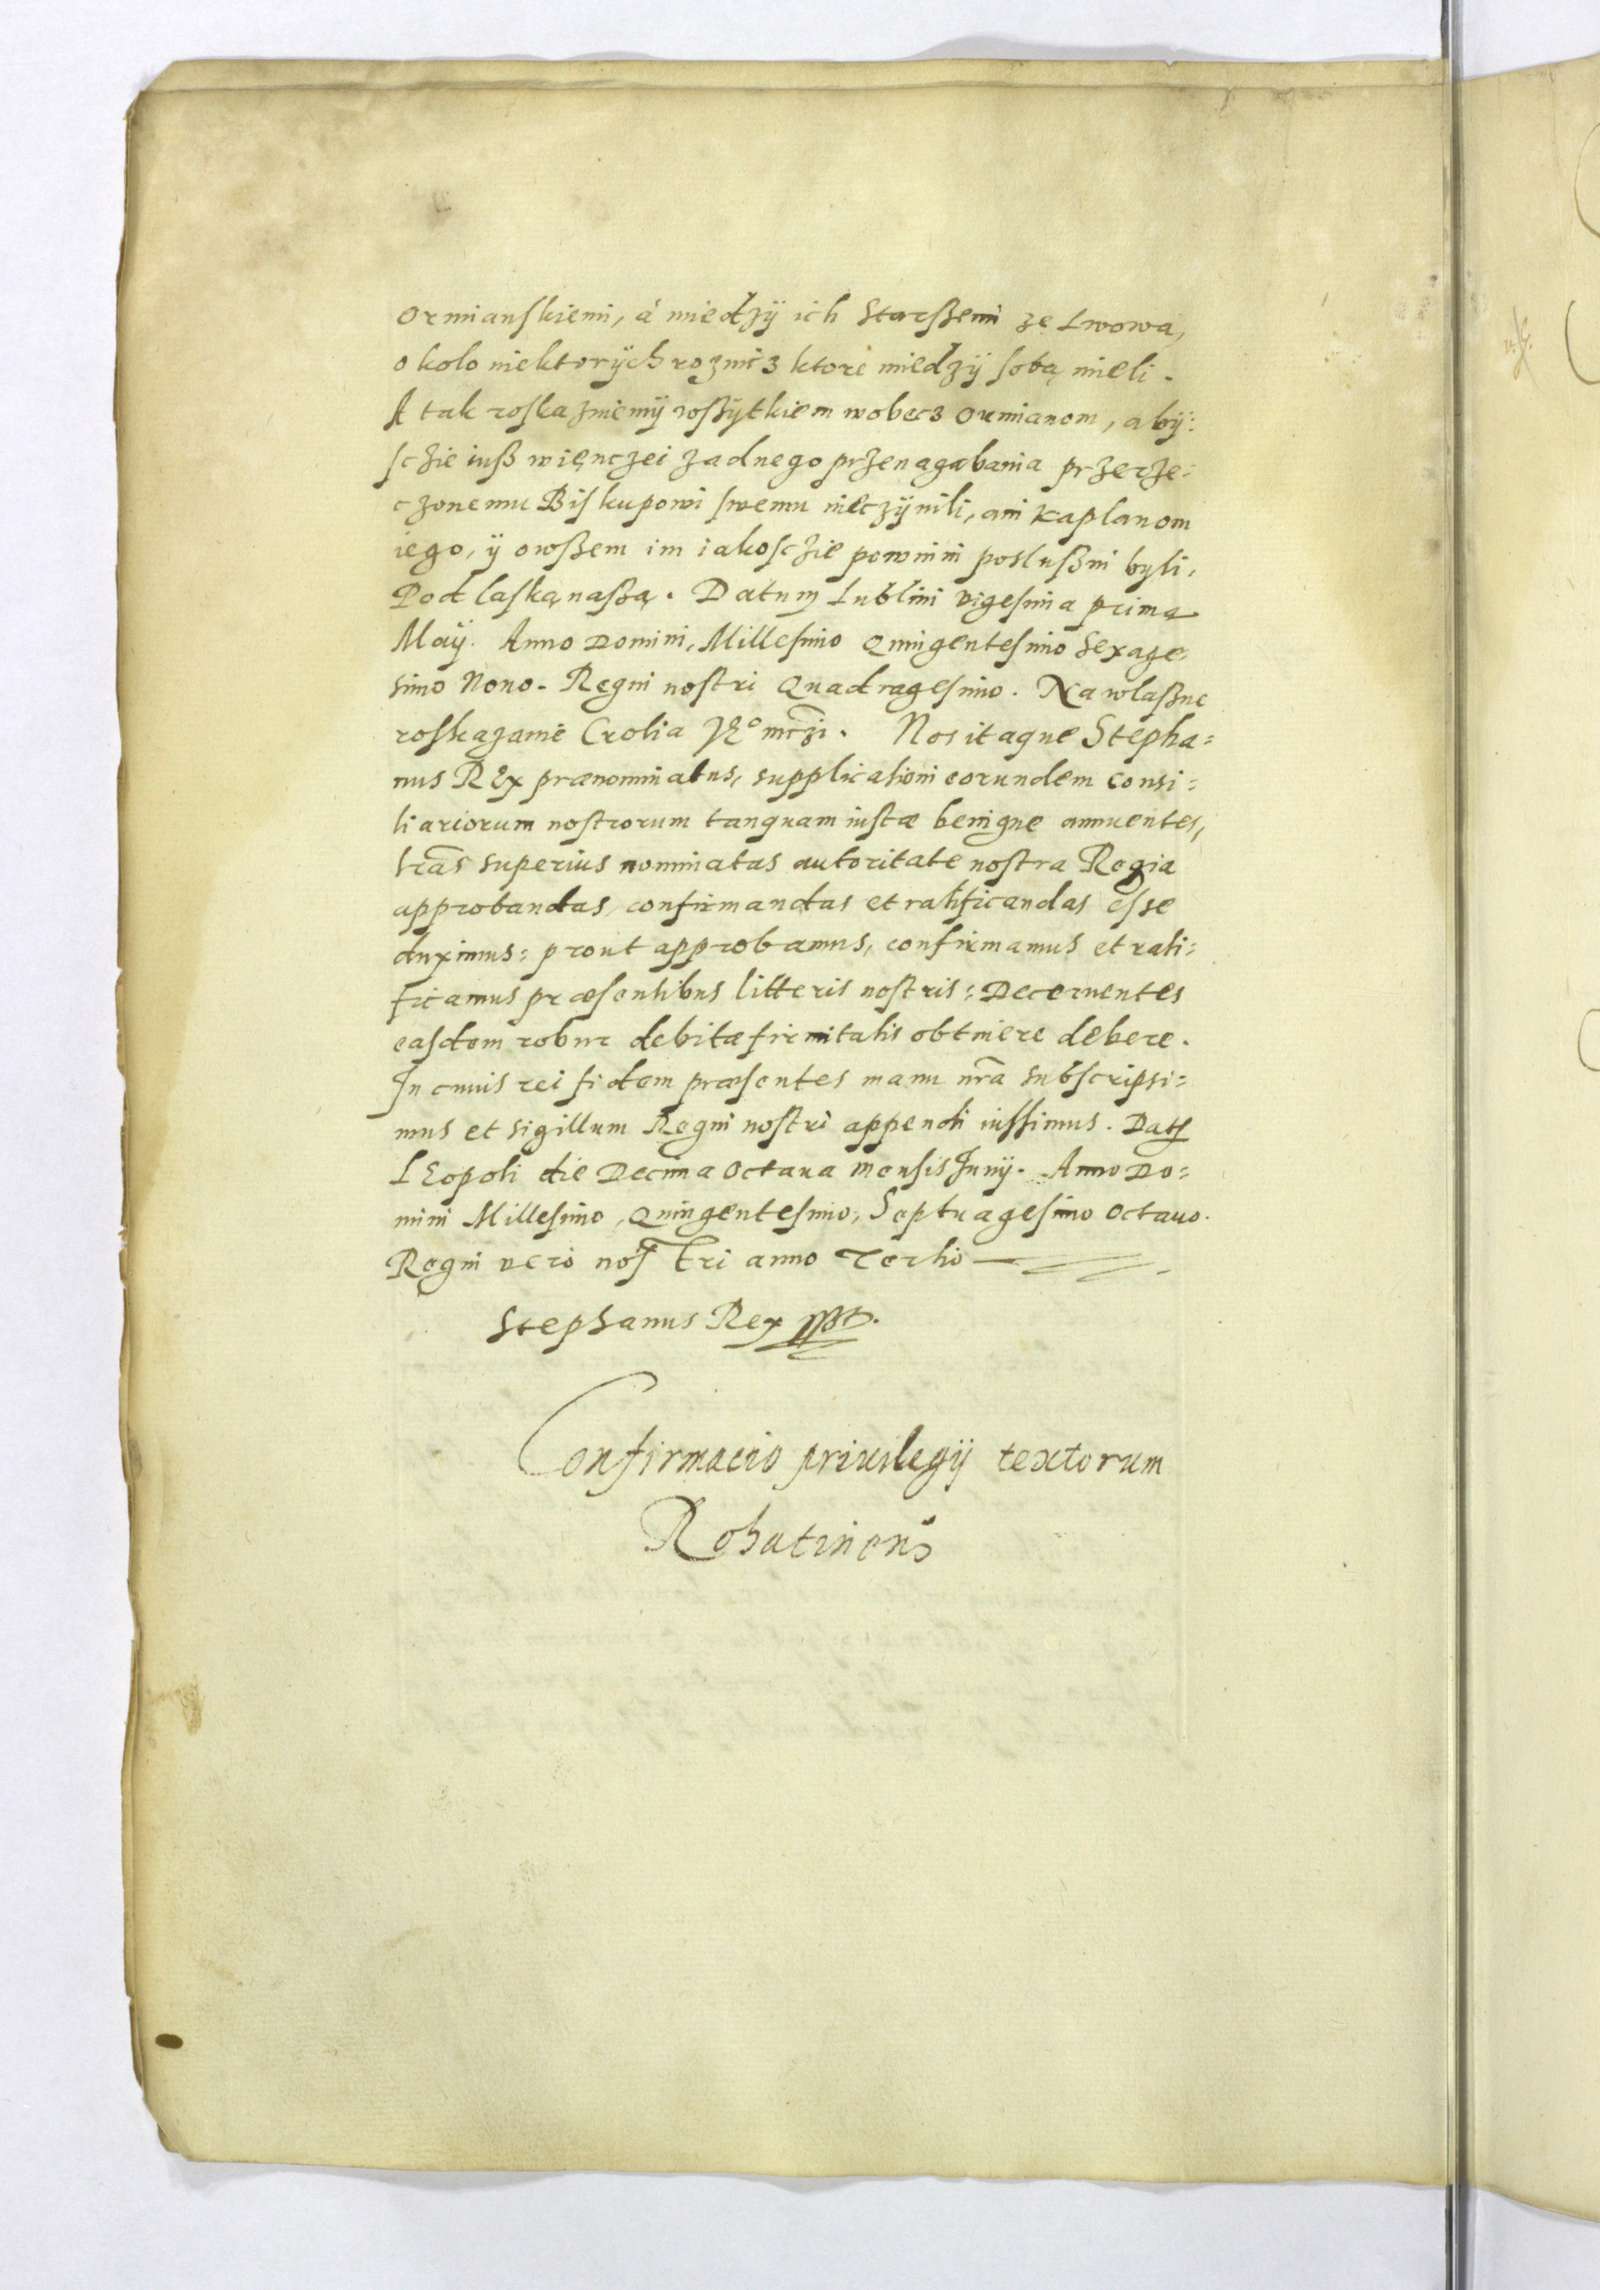 Ormianskiemi, á miedzÿ ich Starßemi ze Lwowa,
około niektorÿch roznicz ktore miedzÿ sobą mieli.
A tak roskazuiemÿ wssÿtkiem wobecz Ormianom, a bÿ:
sczie iuß więnczei zadnego przenagabania przerze:
czonemu Biskupowi swemu nieczÿnili, ani kaplanom
iego, ÿ owßem im iakosczie powinni poslußni byli,
Pod laską naßą. Datum Lublini vigesima prima
Maÿ. Anno Domini, Millesimo Quingentesimo Sexage:
simo Nono. Regni nostri Quadragesimo. Na wlaßne
roskazanie Crolia Je° mczi. Nos itaque Stepha=
nus REx prænominatus, supplicationi eorundem consi=
liariorum nostrorum tanquam iustæ benigne annuentes,
lras superius nominatas autoritate nostra Regia
approbandas, confirmandas et ratificandas esse
duximus: prout approbamus, confirmamus et rati=
ficamus præsentibus litteris nostris: Decernentes
easdem robur debitæ firmitatis obtinere debere.
In cuius rei fidem præsentes manu nra subscripsi=
mus et sigillum Regni nostri appendi iussimus. Datum
LEopoli die Decima Octaua mensis Junij. Anno Do=
mini Millesimo, Quingentesimo, Septuagesimo Octauo.
Regni vero nostri anno Tertio
Stephanus Rex
Confirmacio priuilegij textorum
Rohatinens